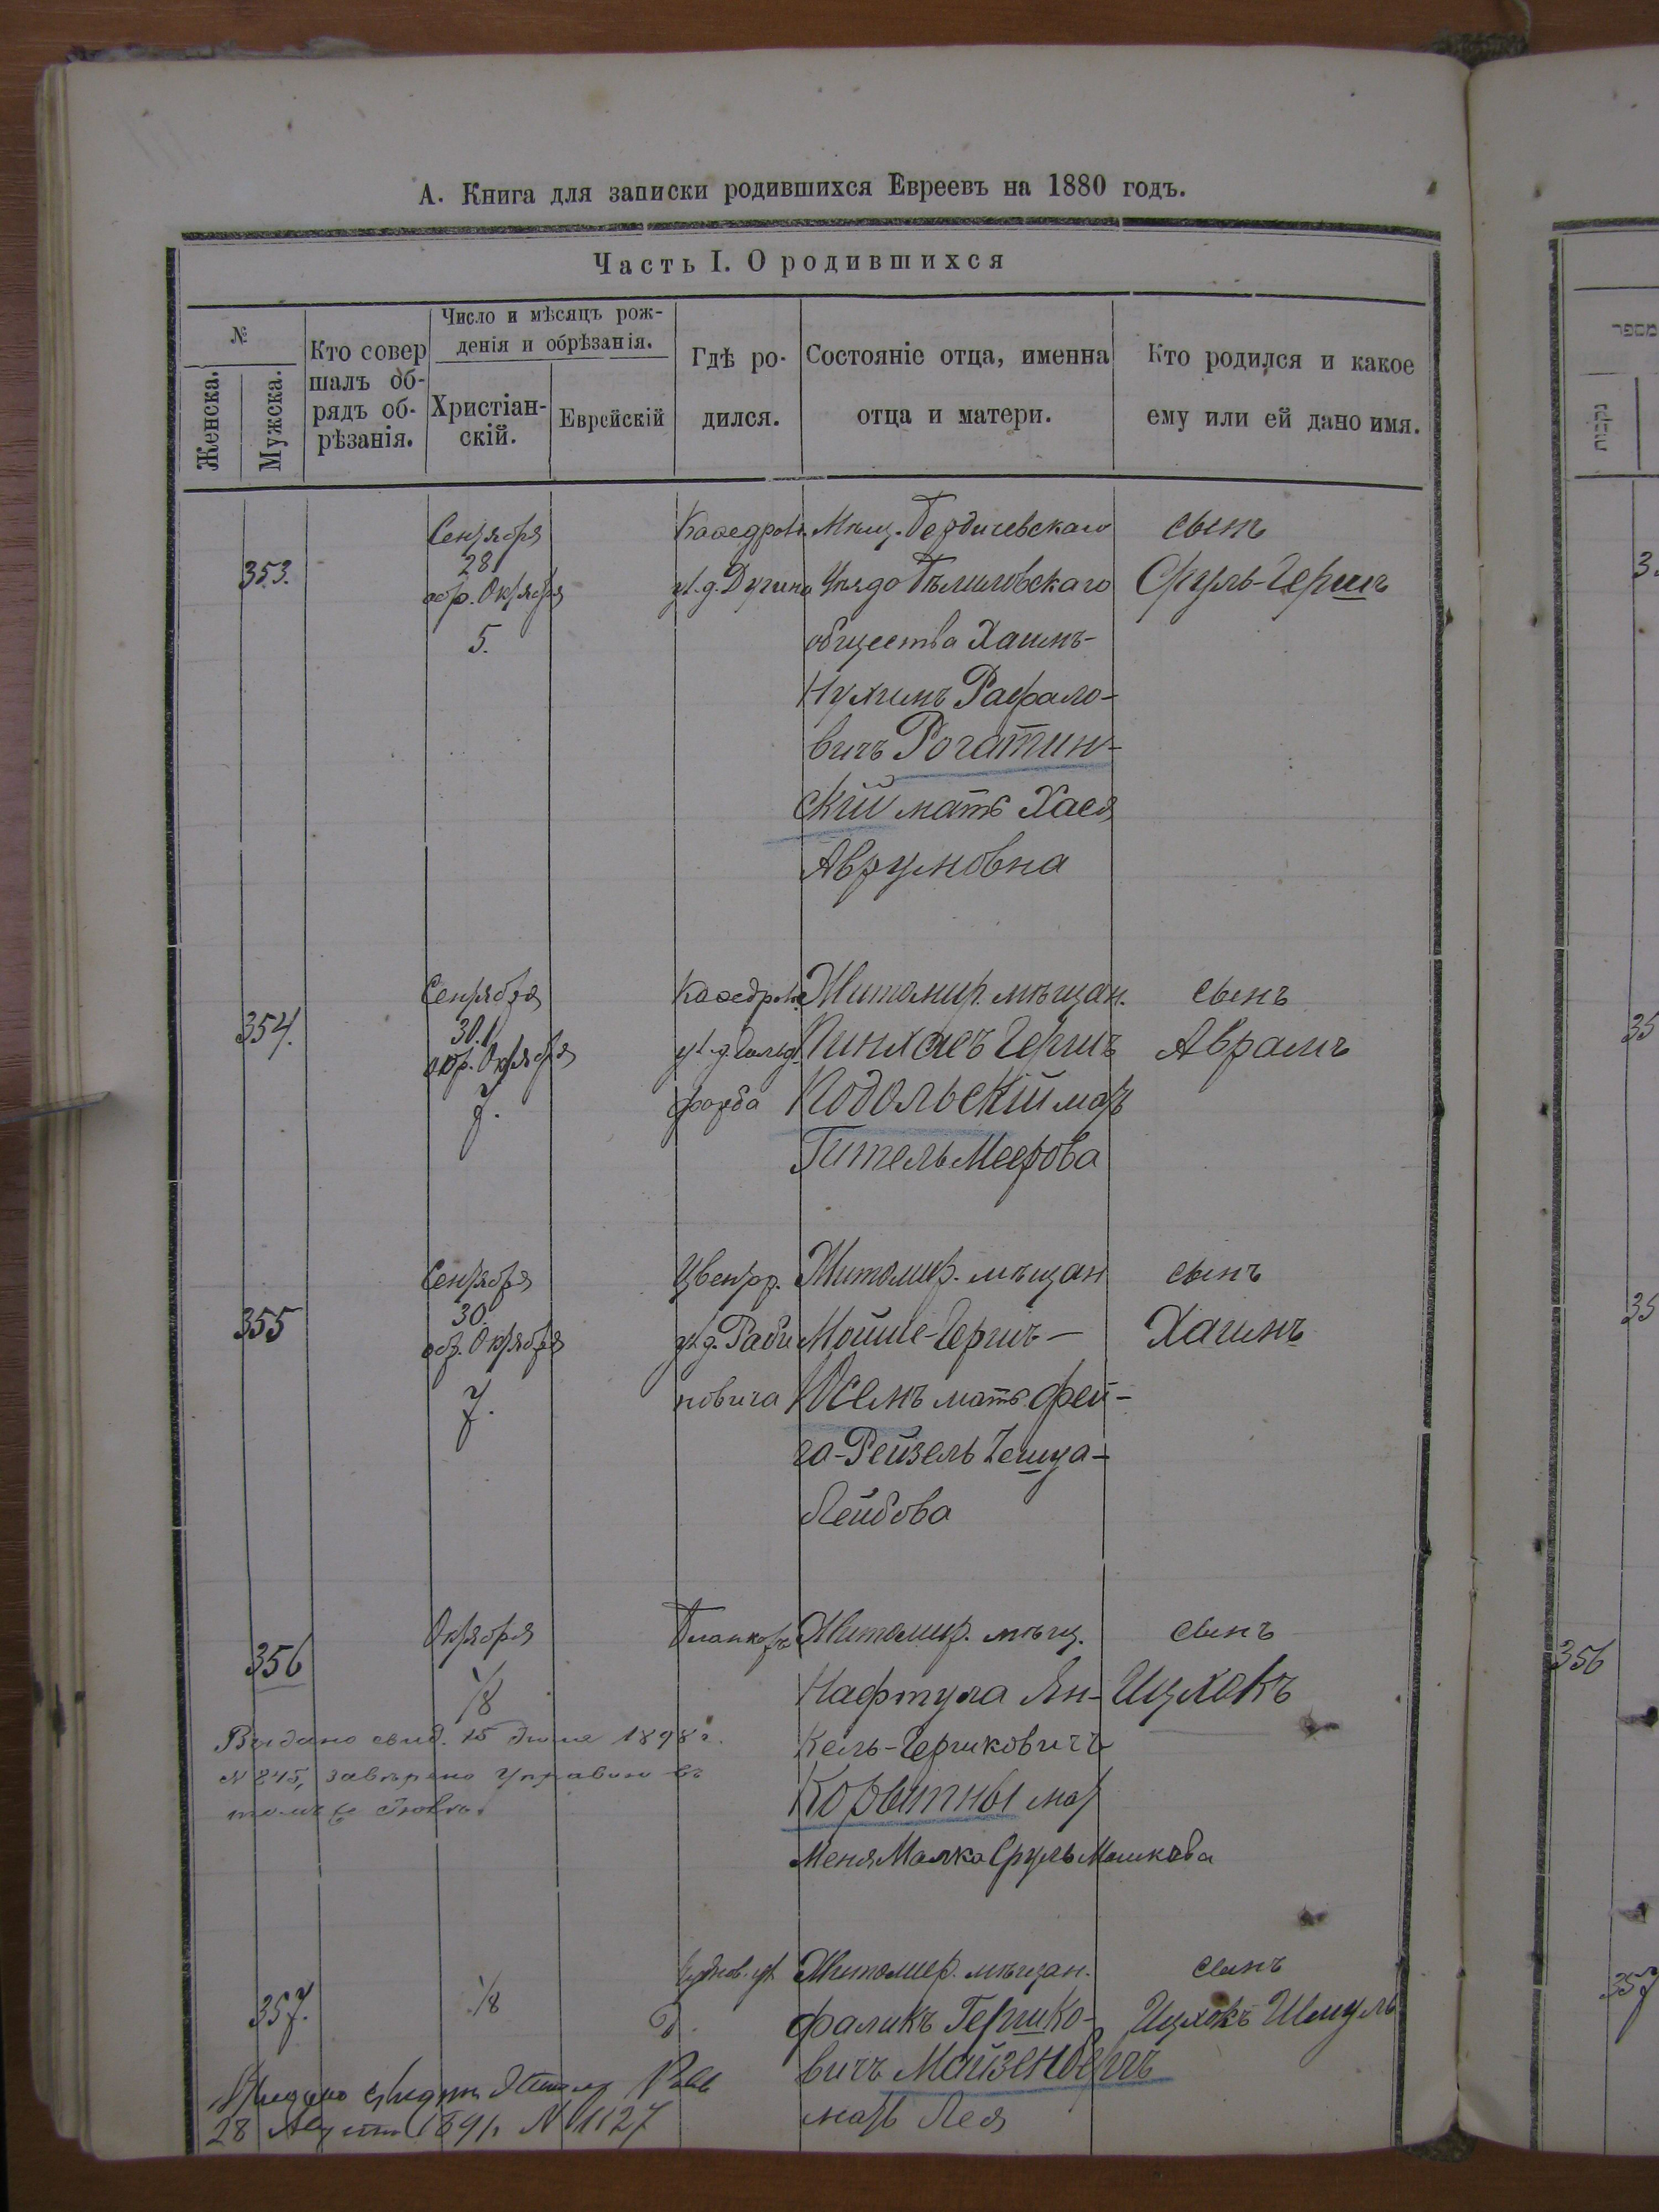 А. Книга для записки родившихся Евреевъ на 1880 годъ.
Часть I. О родившихся
№
Женска.
Мужска.
Кто совер
шалъ об-
рядъ об-
рѣзанія.
Число и мѣсяцъ рож-
денія и обрѣзанія.
Христіан-
скій.
Еврейскій
Гдѣ ро-
дился.
Состояніе отца, именна
отца и матери.
Кто родился и какое
ему или ей дано имя.
353.
Сентября
28.
обр. Октября
5.
Каѳедрал.
ул. д. Дугина
Мѣщ. Бердичевскаго
Уѣзда Бѣлиловскаго
общества Хаимъ-
Нухимъ Рафало-
вичъ Рогатин-
скій мать Хася
Аврумовна
сынъ
Сруль-Гершъ
354.
Сентября
30.
обр. Октября
7.
Каѳедрал.
ул. д. Гольд-
фарба
Житомир. мѣщан.
Пинхасъ Гершъ
Подольскій мать
Гитель Меерова
сынъ
Аврамъ
355
Сентября
30.
обр. Октября
7.
ул. д. Раби
новича
Житомир. мѣщан
Мойше-Гершъ-
Юсемъ мать Фей-
га-Рейзель
Лейбова
сынъ
Хаимъ
356
Октября
1/8
Житомир. мѣщ.
Нафтула Ян-
кель-Гершковичъ
Корытны мать
Меня Малка Сруль Мошкова
сынъ
Ицхокъ
Выдано свид. 15 1898 г.
№ 845, завѣрено Управою въ
357.
1/8
Чуднов. ул.
Житомир. мѣщан.
Фаликъ Гершко-
вичъ Майзенбергъ
мать Лея
сынъ
Ицхокъ Шмуль
Выдано
28 Августа 1891 г. № 1127
מספר
נקבות
356
357